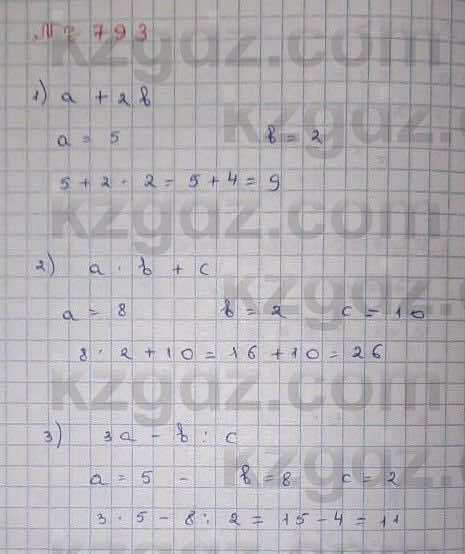 № 793
1) a + 2b
a = 5 b = 2
5 + 2 · 2 = 5 + 4 = 9
2) a · b + c
a = 8 b = 2 c = 10
8 · 2 + 10 = 16 + 10 = 26
3) 3a - b : c
a = 5 - b = 8 c = 2
3 · 5 - 8 : 2 = 15 - 4 = 11
kzgdz.com
kzgdz.com
kzgdz.com
kzgdz.com
kzgdz.com